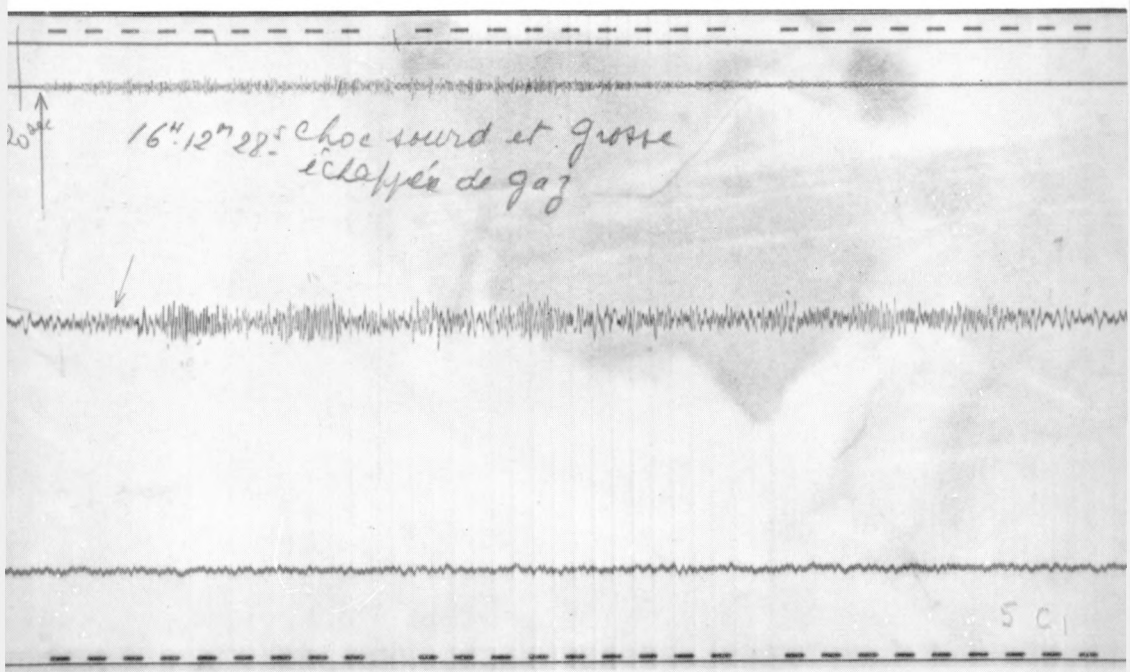 20 sec
16ᴴ 12ᵐ 28ˢ Choc sourd et grosse
échappée de gaz
5 C